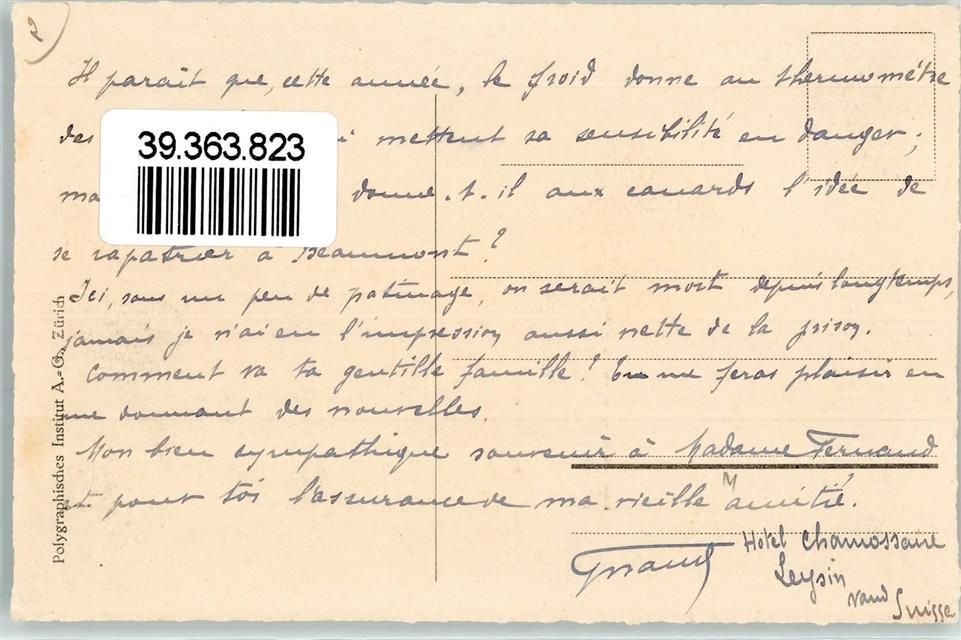 2
Il paraît que, cette année, le froid donne au thermomètre
des mettent sa sensibilité en danger;
39.363.823
donne-t-il aux canards l'idée de
se rapatrier à Beaumont?
Ici, sans un peu de patinage, on serait mort depuis longtemps,
jamais je n'ai eu l'impression aussi nette de la prison.
Comment va ta gentille famille! Tu me feras plaisir en
me donnant des nouvelles.
Mon bien sympathique souvenir à Madame Fernand
et pour toi l'assurance de ma vieille amitié.
Hôtel Chamossaire
Leysin
Vaud
Suisse
Polygraphisches Institut A.=G., Zürich